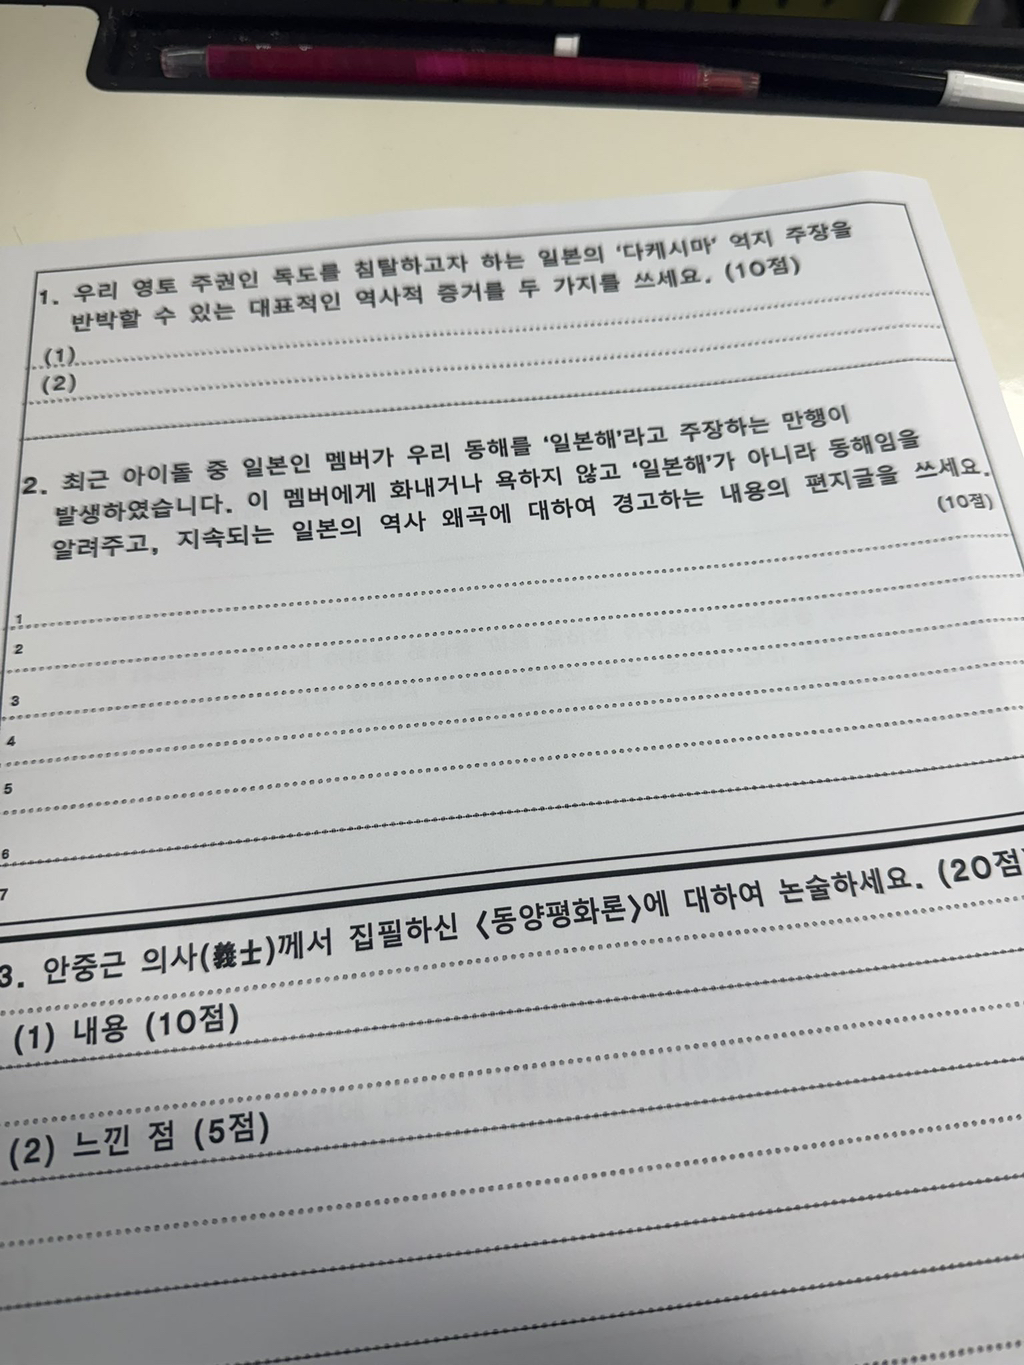 1. 우리 영토 주권인 독도를 침탈하고자 하는 일본의 '다케시마' 억지 주장을
반박할 수 있는 대표적인 역사적 증거를 두 가지를 쓰세요. (10점)
(1)
(2)
2. 최근 아이돌 중 일본인 멤버가 우리 동해를 '일본해'라고 주장하는 만행이
발생하였습니다. 이 멤버에게 화내거나 욕하지 않고 '일본해'가 아니라 동해임을
알려주고, 지속되는 일본의 역사 왜곡에 대하여 경고하는 내용의 편지글을 쓰세요.
(10점)
1
2
3
4
5
6
7
3. 안중근 의사(義士)께서 집필하신 〈동양평화론〉에 대하여 논술하세요. (20점)
(1) 내용 (10점)
(2) 느낀 점 (5점)